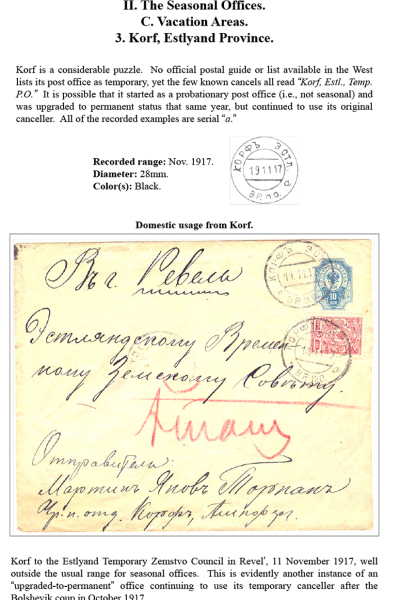 II. The Seasonal Offices.
C. Vacation Areas.
3. Korf, Estlyand Province.
Korf is a considerable puzzle. No official postal guide or list available in the West
lists its post office as temporary, yet the few known cancels all read “Korf, Estl., Temp.
P.O.” It is possible that it started as a probationary post office (i.e., not seasonal) and
was upgraded to permanent status that same year, but continued to use its original
canceller. All of the recorded examples are serial “a.”
Recorded range: Nov. 1917.
Diameter: 28mm.
Color(s): Black.
КОРФЪ ЭСТЛ.
191117
а
ВР.П.О.
Domestic usage from Korf.
Въ г. Ревель
10
Эстляндскому Времен-
ному Земскому Совѣту.
Отправитель:
Мартинъ Яковъ Торпанъ
Korf to the Estlyand Temporary Zemstvo Council in Revel’, 11 November 1917, well
outside the usual range for seasonal offices. This is evidently another instance of an
“upgraded-to-permanent” office continuing to use its temporary canceller after the
Bolshevik coup in October 1917.